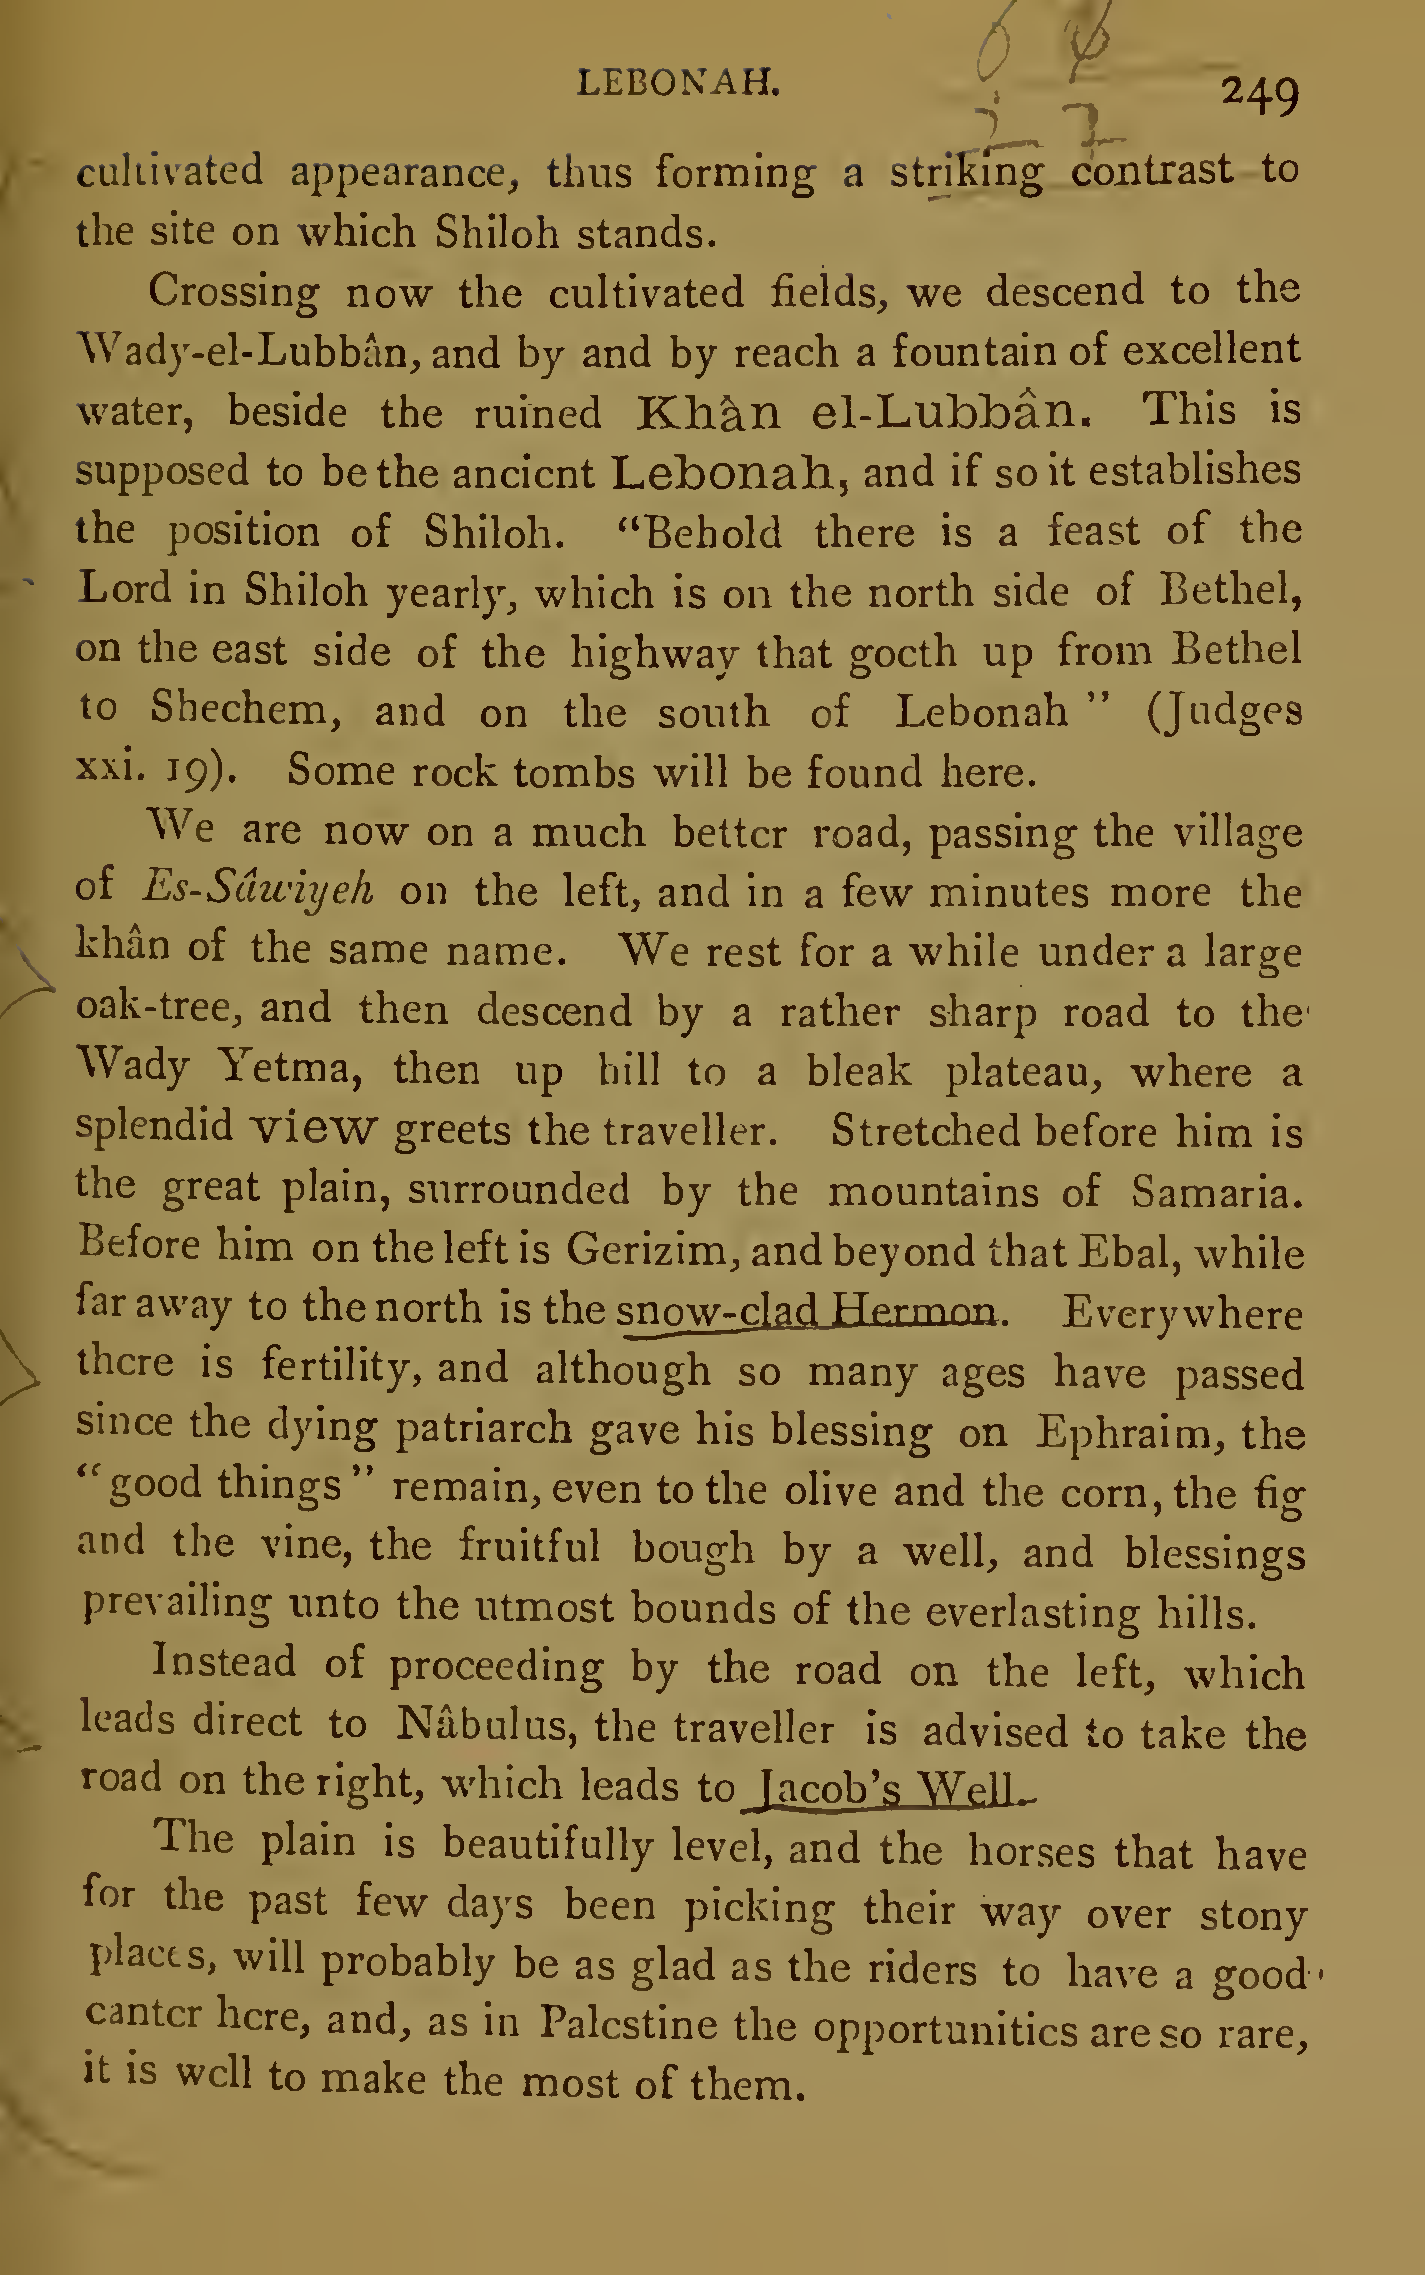 LEBONAH.
249
cultivated appearance, thus forming a striking contrast to
the site on which Shiloh stands.
Crossing now the cultivated fields, we descend to the
Wady-el-Lubbân, and by and by reach a fountain of excellent
water, beside the ruined Khân el-Lubbân. This is
supposed to be the ancient Lebonah, and if so it establishes
the position of Shiloh. “Behold there is a feast of the
Lord in Shiloh yearly, which is on the north side of Bethel,
on the east side of the highway that goeth up from Bethel
to Shechem, and on the south of Lebonah” (Judges
xxi. 19). Some rock tombs will be found here.
We are now on a much better road, passing the village
of Es-Sâwiyeh on the left, and in a few minutes more the
khân of the same name. We rest for a while under a large
oak-tree, and then descend by a rather sharp road to the
Wady Yetma, then up hill to a bleak plateau, where a
splendid view greets the traveller. Stretched before him is
the great plain, surrounded by the mountains of Samaria.
Before him on the left is Gerizim, and beyond that Ebal, while
far away to the north is the snow-clad Hermon. Everywhere
there is fertility, and although so many ages have passed
since the dying patriarch gave his blessing on Ephraim, the
“good things” remain, even to the olive and the corn, the fig
and the vine, the fruitful bough by a well, and blessings
prevailing unto the utmost bounds of the everlasting hills.
Instead of proceeding by the road on the left, which
leads direct to Nâbulus, the traveller is advised to take the
road on the right, which leads to Jacob’s Well.
The plain is beautifully level, and the horses that have
for the past few days been picking their way over stony
places, will probably be as glad as the riders to have a good
canter here, and, as in Palestine the opportunities are so rare,
it is well to make the most of them.